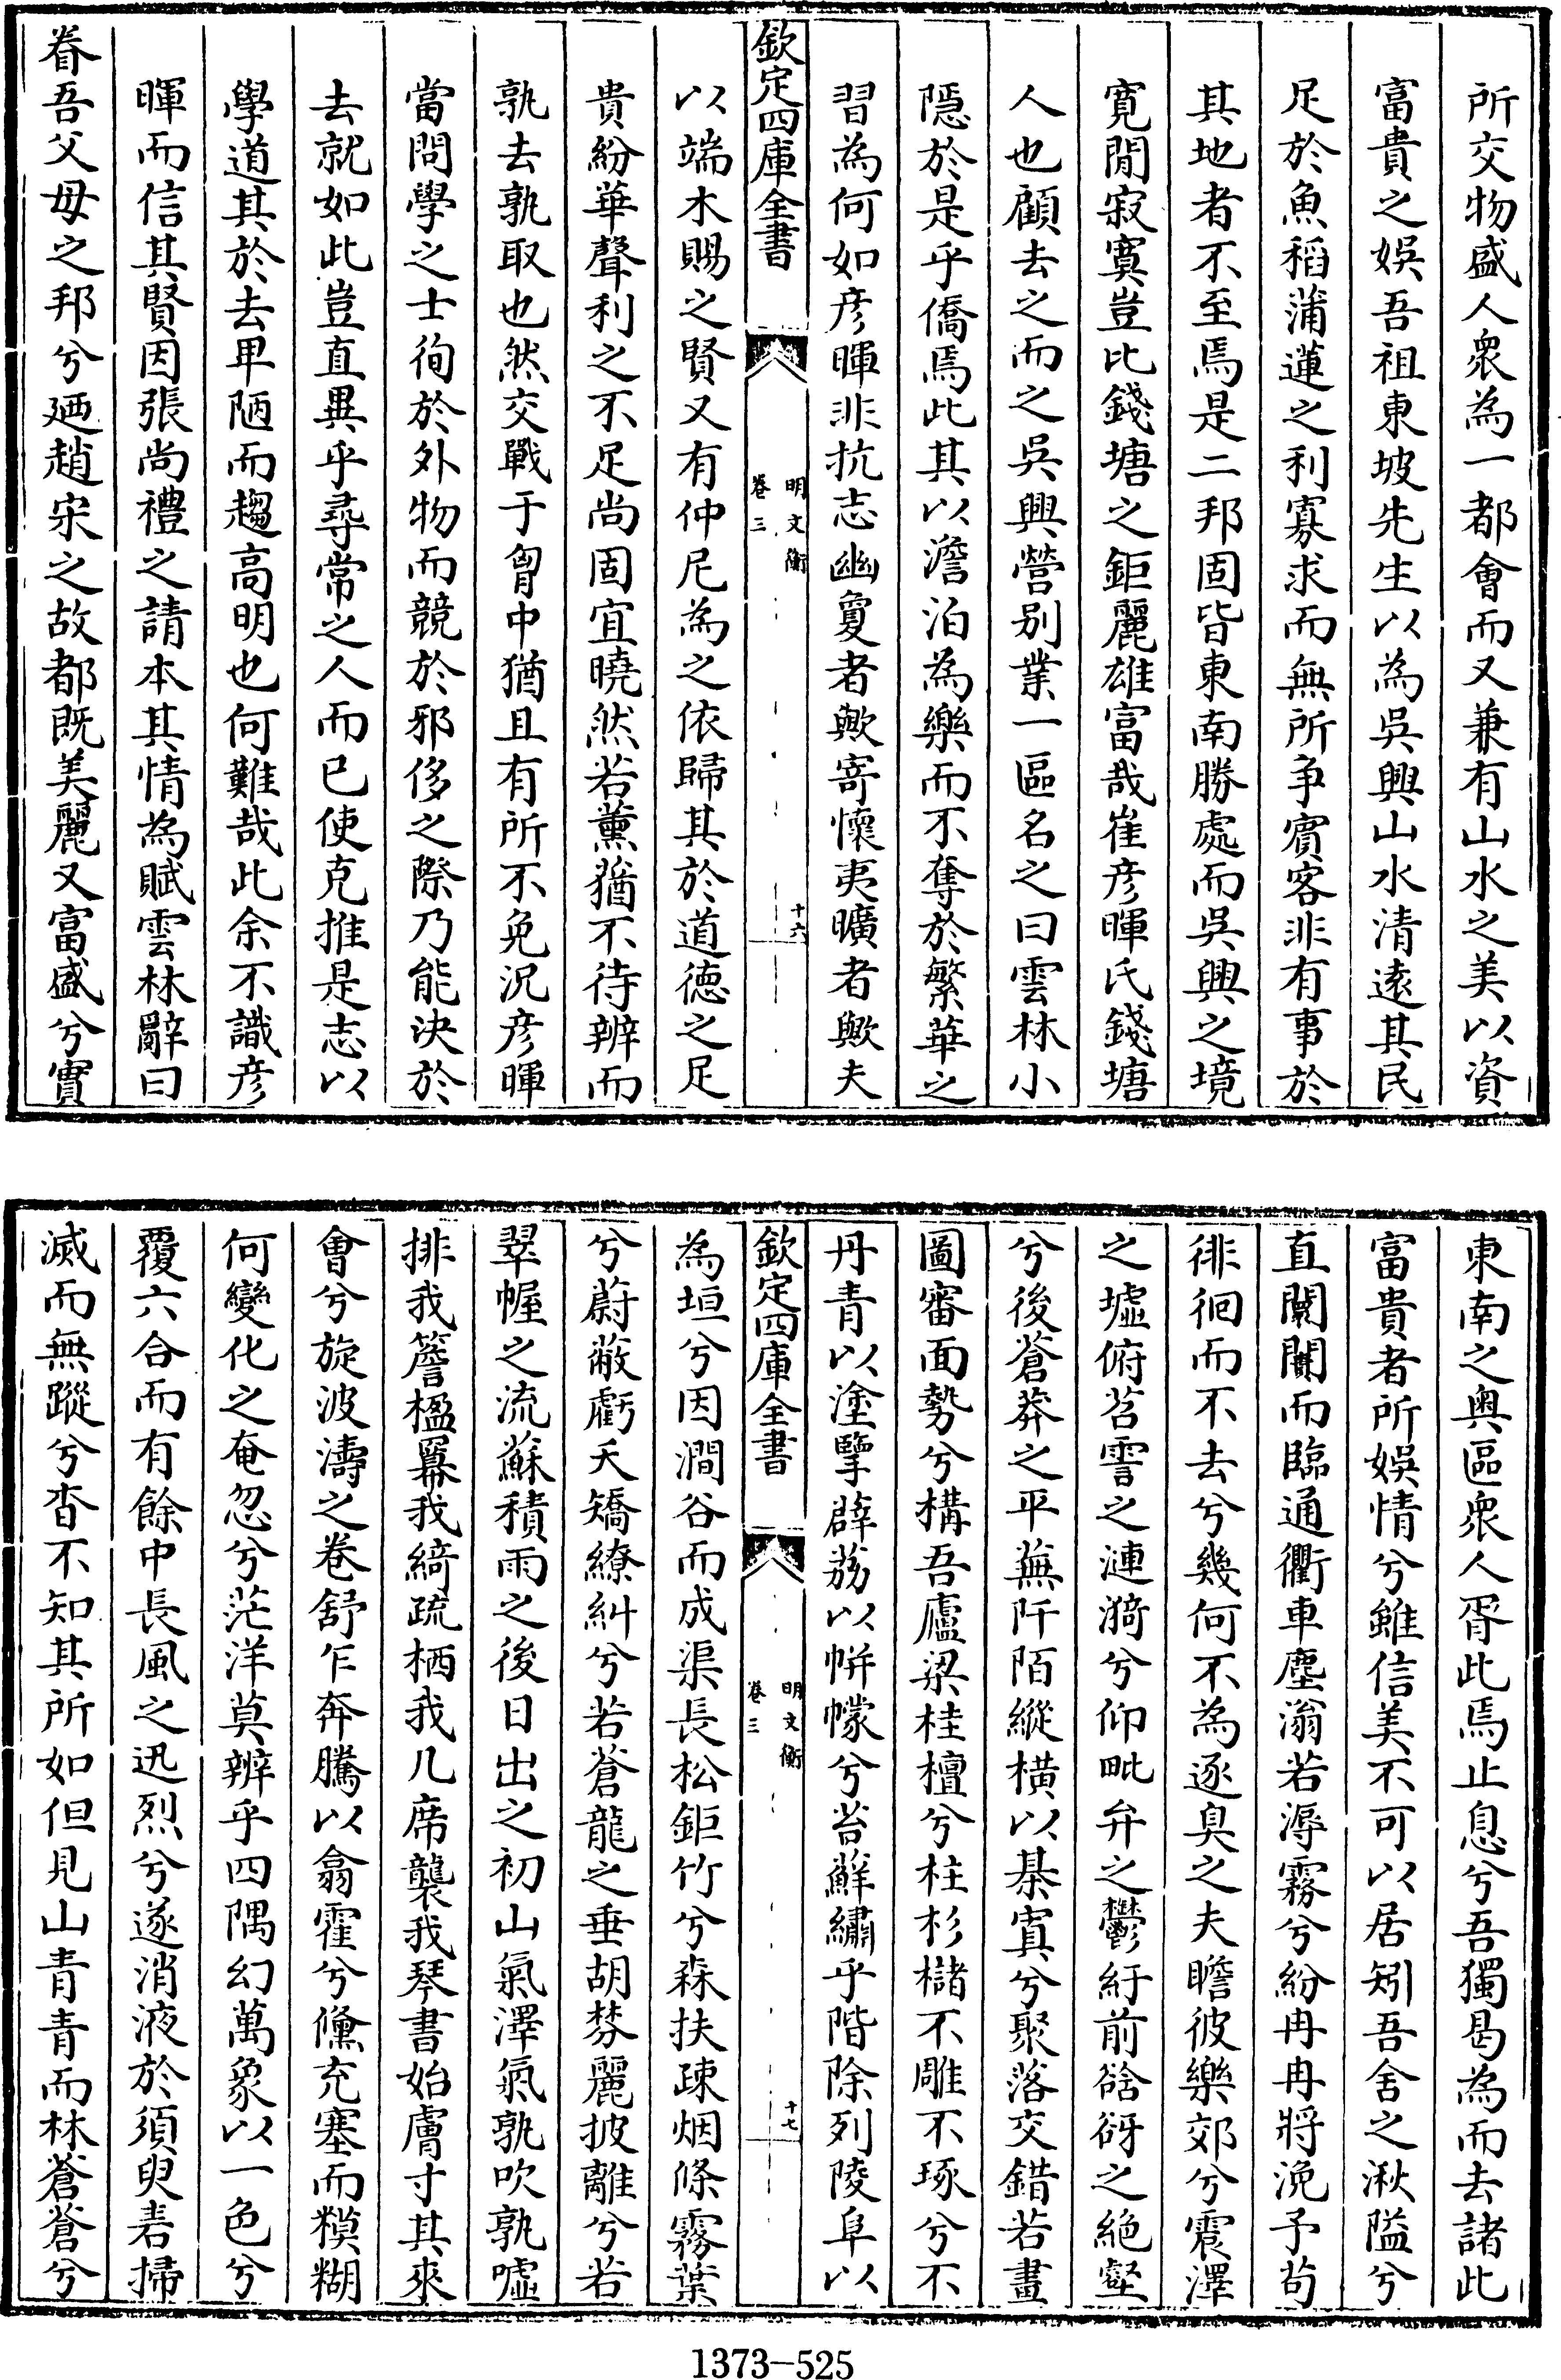 所交物盛人衆為一都會而又兼有山水之美以資
富貴之娯吾祖東坡先生以為吳興山水清逺其民
足於魚稻蒲蓮之利寡求而無所爭賔客非有事於
其地者不至焉是二邦固皆東南勝處而吳興之境
寛閒寂寞豈比錢塘之鉅麗雄富哉崔彦暉氏錢塘
人也顧去之而之吳興營别業一區名之曰雲林小
隠於是乎僑焉此其以澹泊為樂而不奪於繁華之
習為何如彦暉非抗志幽敻者歟寄懐夷曠者歟夫
欽定四庫全書
明文衡
卷三
十六
以端木賜之賢又有仲尼為之依歸其於道徳之足
貴紛華聲利之不足尚固宜曉然若薫蕕不待辨而
孰去孰取也然交戰于胷中猶且有所不免況彦暉
當問學之士徇於外物而競於邪侈之際乃能決於
去就如此豈直異乎尋常之人而已使克推是志以
學道其於去卑陋而趨高明也何難哉此余不識彦
暉而信其賢因張尚禮之請本其情為賦雲林辭曰
眷吾父母之邦兮廼趙宋之故都既美麗又富盛兮實
東南之奥區衆人胥此焉止息兮吾獨曷為而去諸此
富貴者所娯情兮雖信美不可以居矧吾舍之湫隘兮
直闤闠而臨通衢車塵滃若溽霧兮紛冉冉將浼予茍
徘徊而不去兮幾何不為逐臭之夫瞻彼樂郊兮震澤
之墟俯苕霅之漣漪兮仰毗弁之鬱紆前谽谺之絶壑
兮後蒼莽之平蕪阡陌縱横以棊寘兮聚落交錯若畫
圖審面勢兮構吾廬梁桂檀兮柱杉櫧不雕不琢兮不
丹青以塗墍薜荔以帡幪兮苔蘚繡乎階除列陵阜以
欽定四庫全書
明文衡
卷三
十七
為垣兮因澗谷而成渠長松鉅竹兮森扶疎烟條霧葉
兮蔚蔽虧夭矯繚糾兮若蒼龍之垂胡棼麗披離兮若
翠幄之流蘇積雨之後日出之初山氣澤氣孰吹孰嘘
排我簷楹羃我綺疏栖我几席襲我琴書始膚寸其來
㑹兮旋波濤之巻舒乍奔騰以翕霍兮儵充塞而糢糊
何變化之奄忽兮茫洋莫辨乎四隅幻萬象以一色兮
覆六合而有餘中長風之迅烈兮遂消液於須臾砉掃
滅而無蹤兮杳不知其所如但見山青青而林蒼蒼兮
1373-525